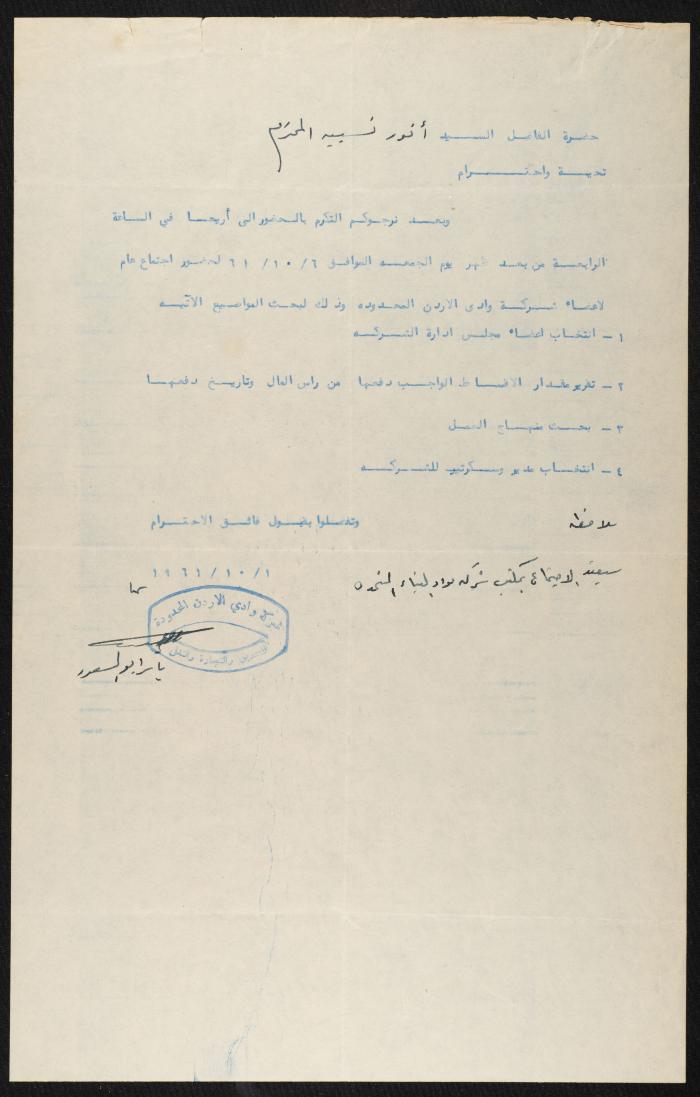 حضرة الفاضل السيد أنور نسيبه المحترم
تحية واحترام
وبعد نرجوكم التكرم بالحضور الى أريحا في الساعة
الرابعة من بعد ظهر يوم الجمعه الموافق ٦/ ١٠/ ٦١ لحضور اجتماع عام
لاعضاء شركة وادى الاردن المحدوده وذلك لبحث المواضيع الآتيه
١ - انتخاب اعضاء مجلس ادارة الشركه
٢ - تقرير مقدار الاقساط الواجب دفعها من راس المال وتاريخ دفعها
٣ - بحث منهاج العمل
٤ - انتخاب مدير وسكرتير للشركه
وتفضلوا بقبول فائق الاحترام
ملاحظه
سيعقد الاجتماع بمكتب شركة مواد البناء المتحده
١/ ١٠/ ١٩٦١
شركة وادي الاردن المحدودة
والتجارة والنقل
ابو السعود